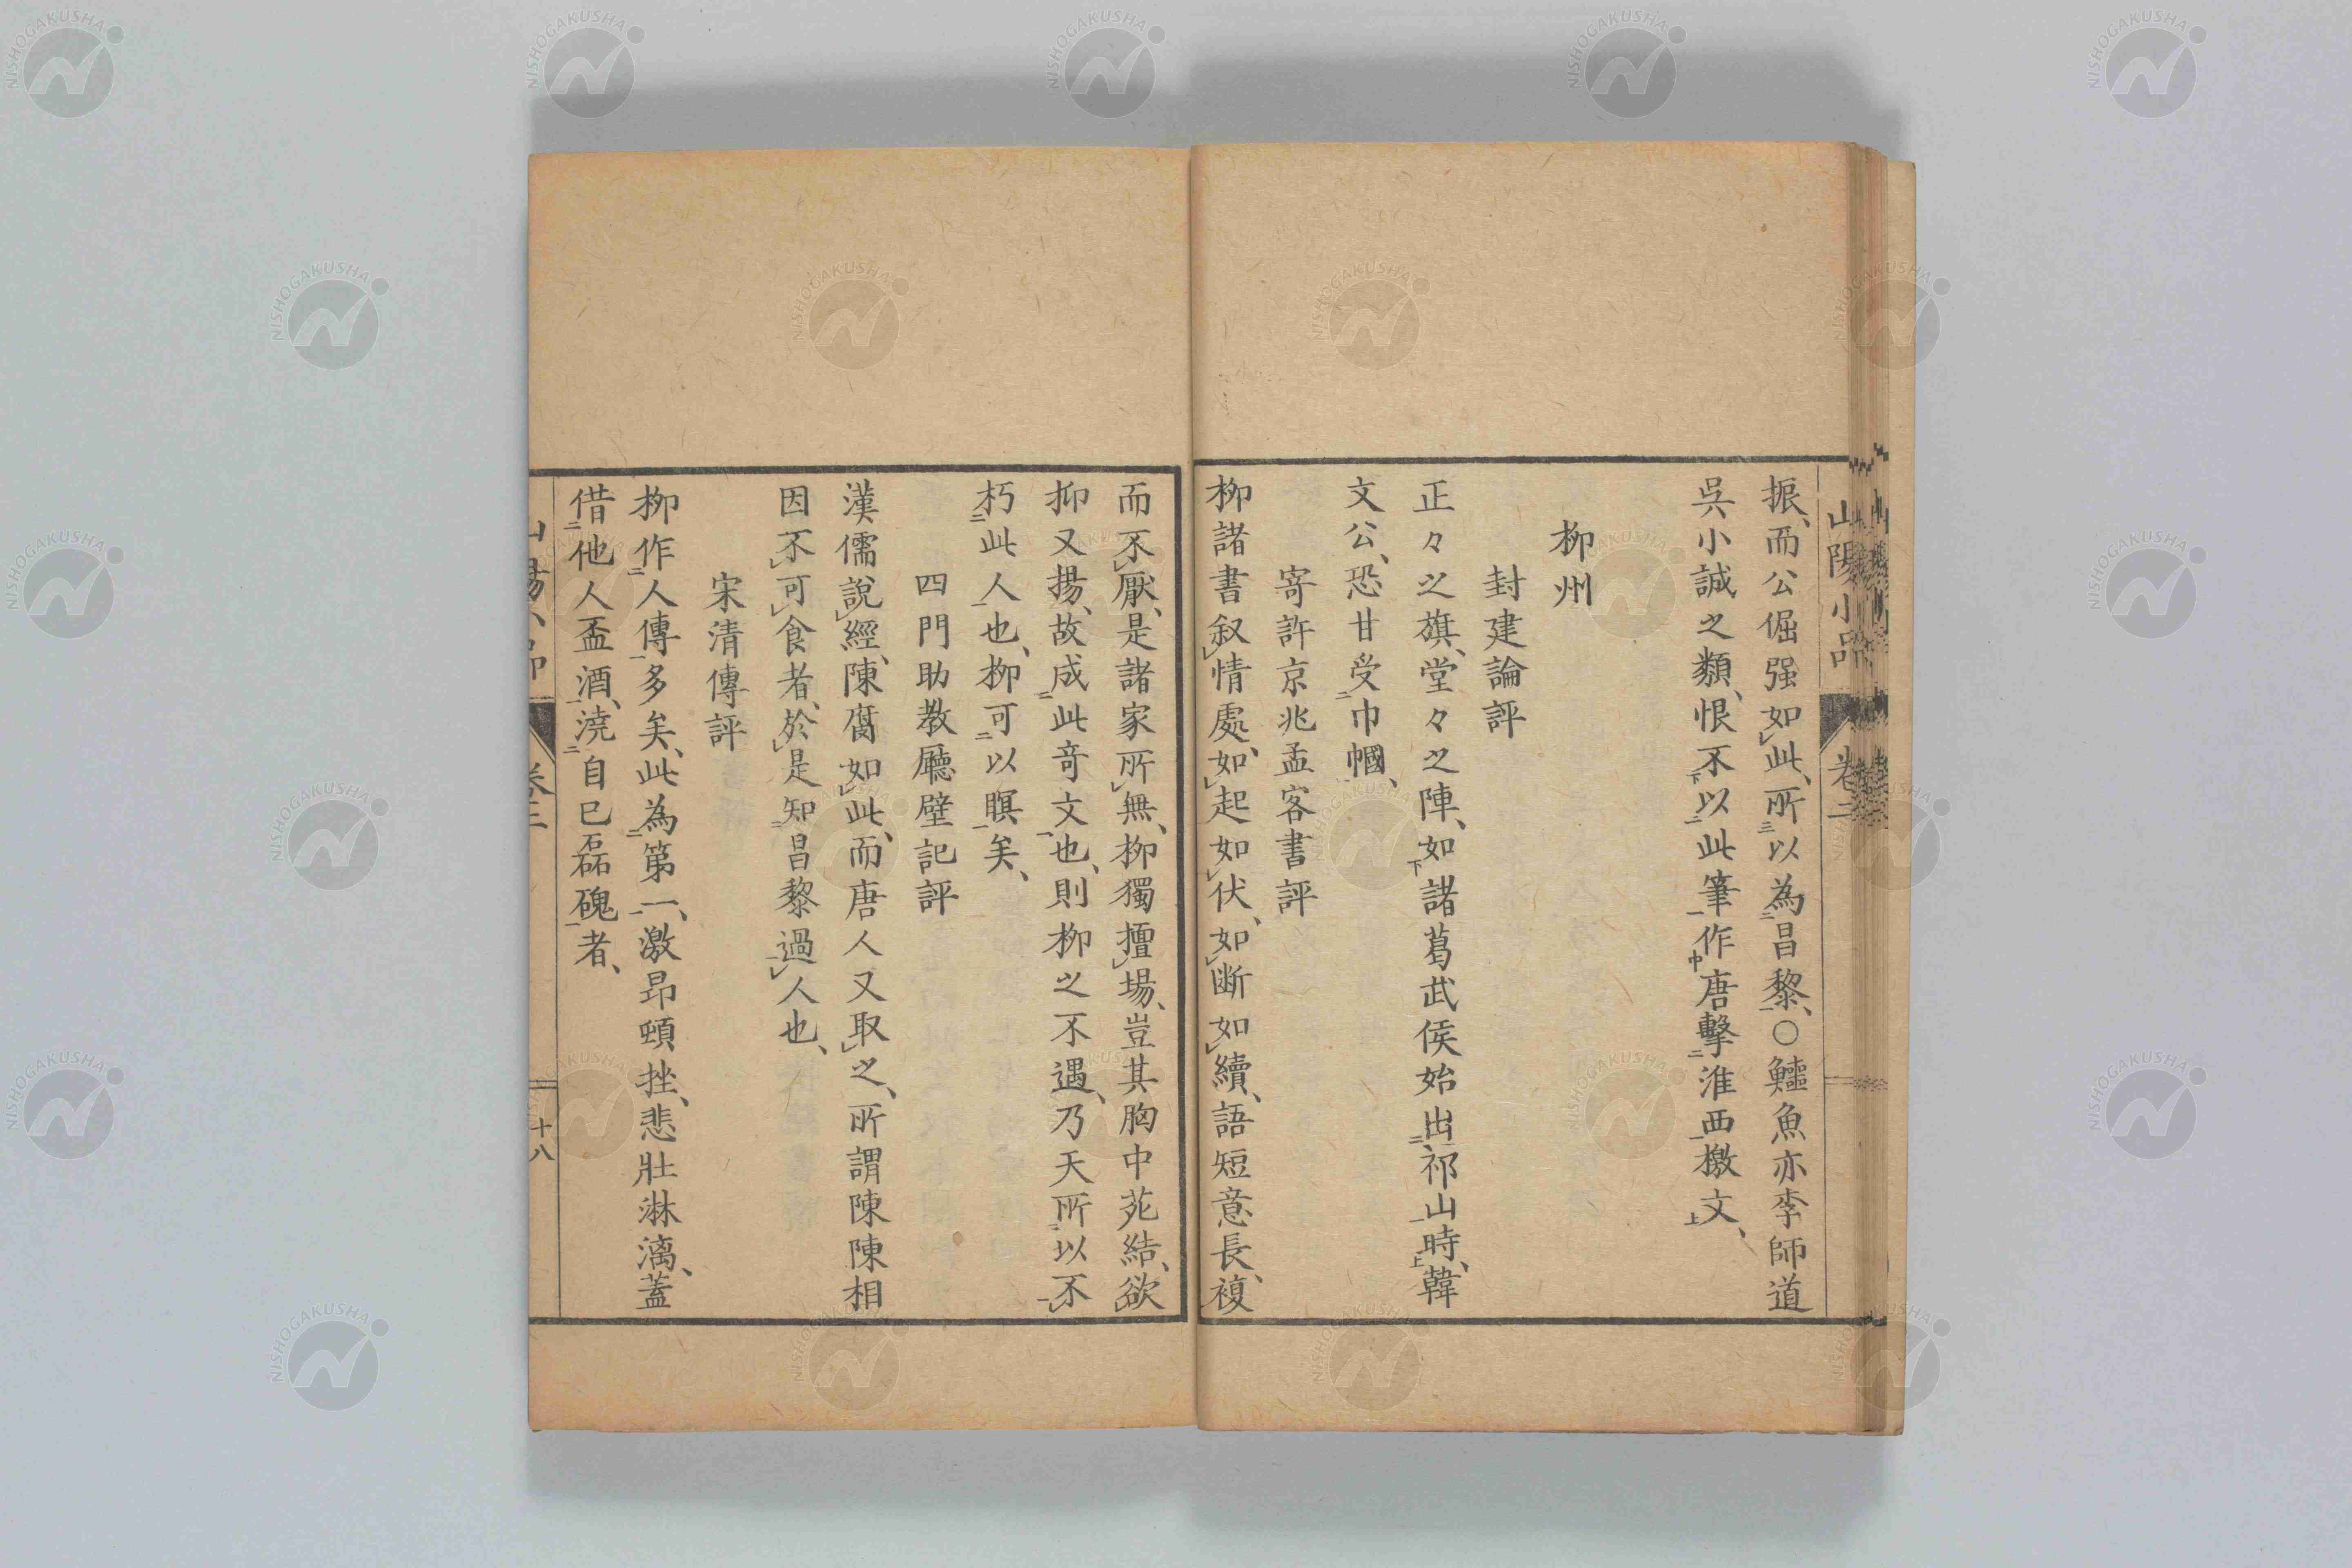 山陽小品 卷二
振、而公倔强如此、所以為昌黎、○鱷魚亦李師道
吳小誠之類、恨不以此筆作唐擊淮西檄文、
柳州
封建論評
正々之旗、堂々之陣、如諸葛武侯始出祁山時、韓
文公、恐甘受巾幗、
寄許京兆孟容書評
柳諸書叙情處、如起如伏、如断如續、語短意長、複
而不厭、是諸家所無、柳獨擅場、豈其胸中菀結、欲
抑又揚、故成此奇文也、則柳之不遇、乃天所以不
朽此人也、柳可以瞑矣、
四門助教廳壁記評
漢儒說經、陳腐如此、而唐人又取之、所謂陳陳相
因不可食者、於是知昌黎過人也、
宋清傳評
柳作人傳多矣、此為第一、激昂頓挫、悲壯淋漓、蓋
借他人盃酒、澆自己磊磈者、
山陽小品 卷二 十八
NISHOGAKUSHA